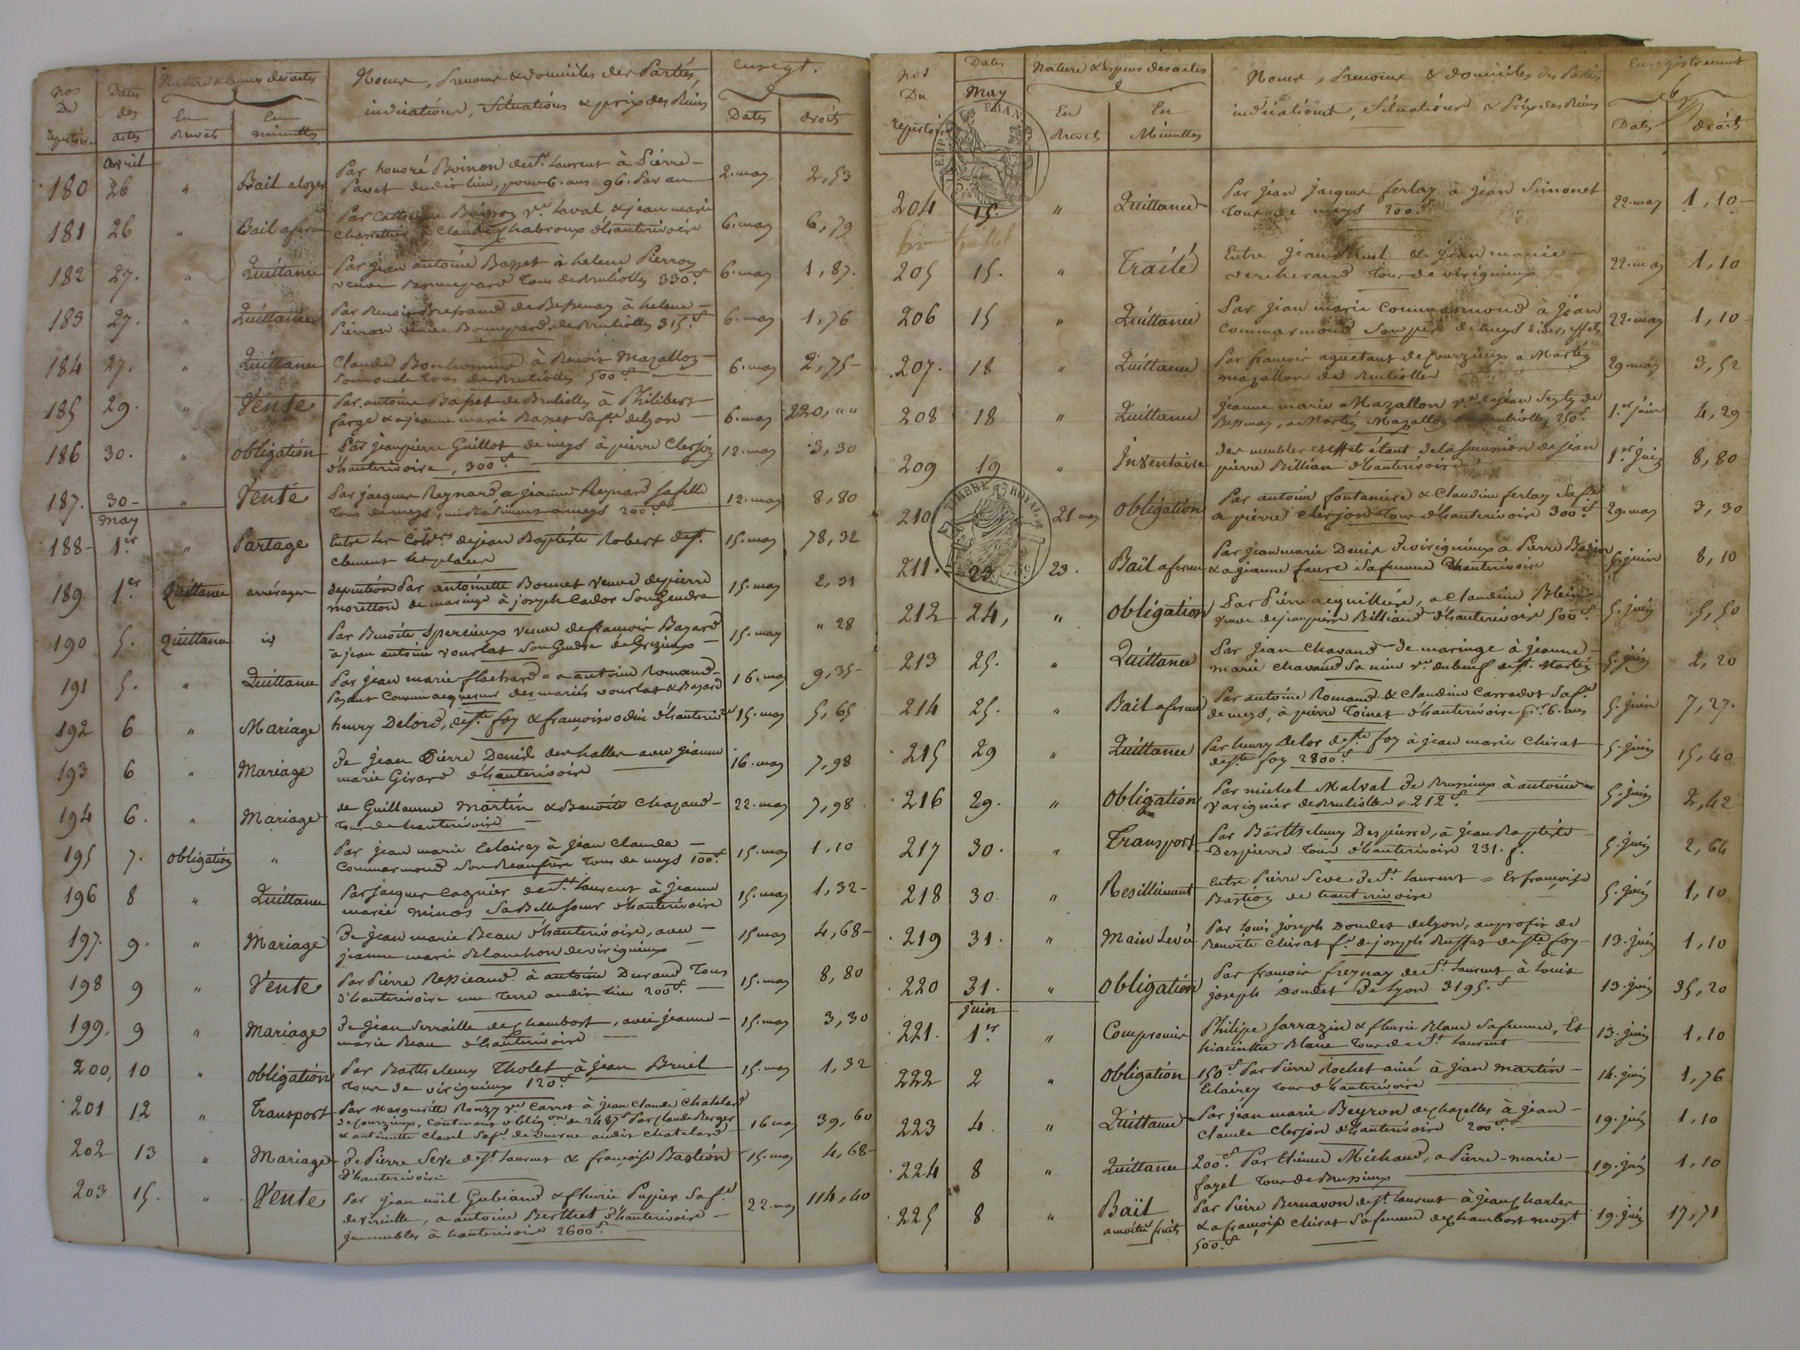 Nos Du répertoire
Dates des actes
Nature & espèces des actes
En Brevets
En minuttes
Noms, Prenoms & domiciles des Parties,
indications, Situations & prix des Biens
Enregt.
Dates
droits
avril
180 26 " Bail a loyer Par honoré Boinon de St. Laurent à Pierre
Pavet dudit lieu, pour 6 ans 96. Par an 2. may 2,53
181 26 " Bail a ferme Par Catherine Buisson ve. Laval & jean marie
à Claude Chabroux d'hauterivoire 6. may 6,79
182 27. " Quittance Par jean antoine Basset à helene Pierron
veuve Bonnepard Tous de Brulioles 330.f 6. may 1,87.
183 27. " Quittance Par Benoit de Bessenay à helene
Pierron veuve Bonnepard de Brulioles 315.f 6. may 1,76
184 27. " Quittance Claude Bonhomme à Benoit Mazallon
Son oncle Tous de Brulioles 500.f 6. may 2,75
185 29. " Vente Par antoine Bapet de Brulioles à Philibert
farge & a jeanne marie Bapet Sa fe. de Lyon 6. may 220, " "
186 30. " obligation Par jean pierre Guillot de meys à pierre Clerjon
d'hauterivoire, 300.f 12. may 3,30
187. 30 " Vente Par jacques Reynard a jeanne Reynard Sa fille
Tous de meys, a meys 200.f 12. may 8,80
may
188 1er " Partage Entre Les de jean Baptiste Robert de St.
Clement les places 15. may 78,32
189 1er Quittance arrérages de pention Par antoinette Bonnet veuve de pierre
moretton de maringe à joseph Cador Son Gendre 15. may 2,31
190 5. Quittance id Par Benoite Spereieux veuve de francois Bazard
à jean antoine vourlat Son Gendre de Grezieux 15. may " 28
191 5. " Quittance Par jean marie flachard = a antoine Romand
Payant Comme acquereur des mariés vourlat & Bazard 16. may 9,35
192 6 " Mariage henry Delord, de Ste foy & françoise odin d'hauterivre 15. may 5,65
193 6 " Mariage de jean Pierre Denis des halles avec jeanne
marie Girard d'hauterivoire 16. may 7,98
194 6. " Mariage de Guillaume Martin & Benoite Chazaud
Tous de hauterivoire 22. may 7,98
195 7. obligation " Par jean marie Eclairey à jean Claude
Commarmond Son Beaufrère Tous de meys 100.f 15. may 1,10
196 8 " Quittance Par jacques Cognier de St. Laurent à jeanne
marie minos Sa Belle Soeur d'hauterivoire 15. may 1,32
197. 9. " Mariage de jean marie Beau d'hauterivoire, avec
jeanne marie Blanchon de virigneux 15 may 4,68
198 9 " Vente Par Pierre Ressicaud à antoine Durand Tous
d'hauterivoire une Terre audit lieu 200.f 15. may 8,80
199. 9 " Mariage de jean Serraille de chambost, avec jeanne
marie Beau d'hauterivoire 15. may 3,30
200, 10 " obligation Par Barthelemy Tholet à jean Bruel
Tous de virigneux 120.f 15. may 1,32
201 12 " Transport Par Marguerite Ronzy ve. Carret à jean Claude Chatelard
de fourzieux, Contenant oblig.on de 2487.f Par Claude Berger
& antoinette Clavel Sa fe. de Duerne audit Chatelard 16 may 39,60
202 13 " Mariage de Pierre Seve de St. Laurent & françoise Bastion
d'hauterivoire 15. may 4,68
203 15. " Vente Par jean noël Gubiand & fleurie Pupier Sa fe.
de vireille, a antoine Berthet d'hauterivoire
jmmeubles à hauterivoire 2600.f 22. may 114,40
Nos Du Répertoire
Dates
May
Nature & espèces des actes
En Brevets
En Minuttes
Noms, Prenoms & domiciles des Parties
indications, Situations & Prix des Biens
Enregistrement
Dates
droits
TIMBRE ROYAL
204 15. " Quittance Par jean jacques ferlay à jean Simonet
Tous de meys 200.f 22. may 1,10
205 15. " Traité Entre jean Bruel & jean marie
vercherand Tous de virigneux 22. may 1,10
206 15 " Quittance Par jean marie Commarmond à jean
Commarmond Son père de meys divers effets 22. may 1,10
207. 18 " Quittance Par francois aguetant de fourzieux a Martin
mazallon de Brulioles 29. may 3,52
208 18 " Quittance jeanne marie Mazallon ve. de jean Seyty de
Bessenay, a Martin Mazallon de Brulioles 250.f 1er juin 4,29
209 19 " Inventaire des meubles & effets étant de la Succession de jean
pierre Billian d'hauterivoire 1er juin 8,80
210 21 may obligation Par antoine fontaniere & Claudine ferlay Sa fe.
a pierre Clerjon Tous d'hauterivoire 300.f 29. may 3,30
211. 23 23. Bail a ferme Par jean marie Denis de virigneux à Pierre Bazin
& a jeanne faure Sa femme d'hauterivoire 5. juin 8,10
212 24, " obligation Par Pierre arquilliere, a Claudine Blein
veuve de jean pierre Billiand d'hauterivoire 500.f 5. juin 5,50
213 25. " Quittance Par jean Chavand de maringe à jeanne
marie Chavand Sa niece ve. dubeuf de St. Martin 5. juin 2,20
214 25. " Bail a ferme Par antoine Romand & Claudine Carradot Sa fe.
de meys, à pierre Toinet d'hauterivoire pr. 6. ans 5. juin 7,27.
215 29 " Quittance Par henry Delor de Ste. foy à jean marie Chirat
de Ste foy 2800.f 5. juin 15,40
216 29. " obligation Par michel Malval de Brussieux à antoine
Varignier de Brulioles 212.f 5. juin 2,42
217 30. " Transport Par Barthelemy Despierre, à jean Baptiste
Despierre Tous d'hauterivoire 231. f. 5. juin 2,64
218 30. " Resilliment Entre Pierre Seve de St. Laurent = Et françoise
Bastion de hauterivoire 5. juin 1,10
219 31. " Main Levée Par Louis joseph Doudet de Lyon, au profit de
Benoite Chirat fe. de joseph Ruffat de Ste foy 13. juin 1,10
220 31. " obligation Par francois freynay de St. Laurent à Louis
joseph Doudet de Lyon 3195.f 13. juin 35,20
juin
221. 1er " Compromis Philipe Sarrazin & fleurie Blanc Sa femme, Et
hiacinthe Blanc Tous de St. Laurent 13. juin 1,10
222 2 " obligation 150.f Par Pierre Rochet ainé à jean martin
Eclairey Tous d'hauterivoire 14. juin 1,76
223 4. " Quittance Par jean marie Beyron de chazelles à jean
Claude Clerjon d'hauterivoire 200.f 19. juin 1,10
224 8 " Quittance 200.f Par Etienne Michaud, a Pierre marie
fayel Tous de Brussieux 19. juin 1,10
225 8 " Bail a moitié fruits Par Pierre Bernavon de St. Laurent à jean Charles
& a françoise Chirat Sa femme de chambost moyt
500.f 19. juin 17,71